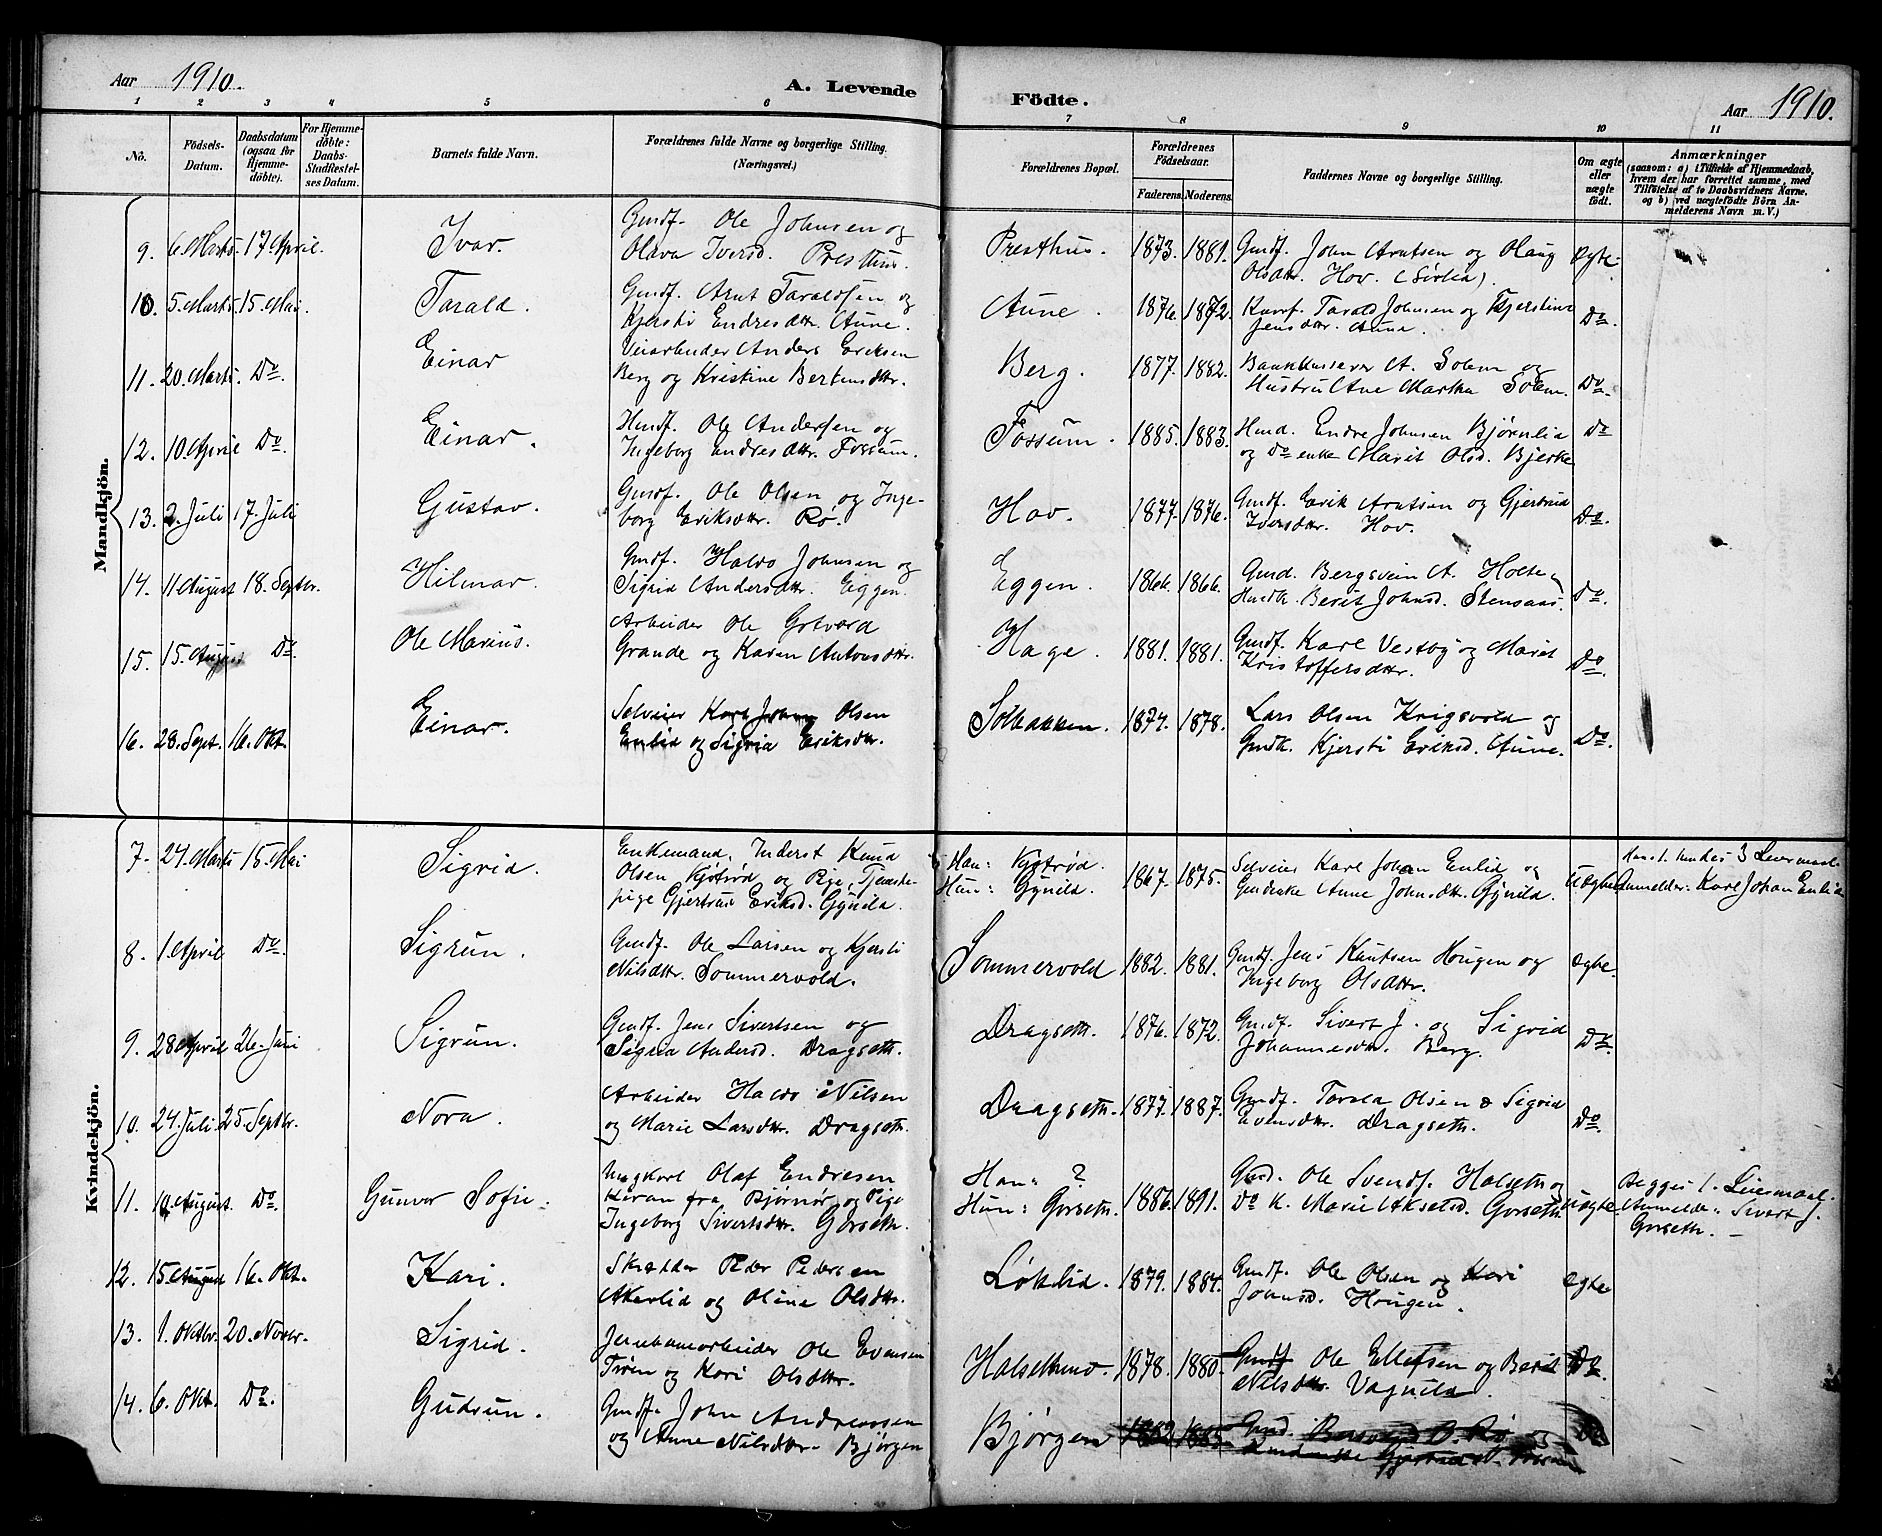 Aar 1910. A. Levende Födte. Aar 1910.
1 2 3 4 5 6 7 8 9 10 11
No. Födsels-Datum. Daabsdatum (ogsaa for Hjemme-döbte). For Hjemme-döbte: Daabs-Stadfæstel-ses Datum. Barnets fulde Navn. Forældrenes fulde Navne og borgerlige Stilling. (Næringsvei.) Forældrenes Bopæl. Forældrenes Födselsaar. Faderens. Moderens. Faddernes Navne og borgerlige Stilling. Om ægte eller uægte födt. Anmærkninger (saasom: a) i Tilfælde af Hjemmedaab, hvem der har forrettet samme, med Tilföielse af to Daabsvidners Navne, og b) ved uægtefödte Börn An-melderens Navn m. V.)
Mandkjön.
9. 6. Marts. 17 April. Ivar. Gmdf. Ole Johnsen og Olava Iversd. Presthus. Presthus. 1873. 1881. Gmdf. John Arntsen og Olaug Olsdtr. Hov. (Sørlia). Ægte.
10. 5. Marts. 15. Mai. Tarald. Gmdf. Arnt Taraldsen og Kjersti Endresdtr. Aune. Aune. 1876. 1872. Tarald Johnsen og Kjerstine Jensdtr. Aune. Do.
11. 20. Marts. Do. Einar Veiarbeider Anders Eriksen Berg og Kristine Berntsdtr. Berg. 1877. 1882. Bankkasserer A. Solem og Hustru Ane Martha Solem. Do.
12. 10. April Do. Einar. Husdf. Ole Andersen og Ingeborg Endresdtr. Fossum. Fossum. 1885. 1883. Husd. Endre Johnsen Bjørnlia og Do enke Marit Olsd. Bjerke Do
13. 2. Juli 17. Juli Gustav. Gmdf. Ole Olsen og Inge-borg Eriksdtr. Rø. Hov. 1877. 1876. Gmdf. Erik Arntsen og Gjertrud Iversdtr. Hov. Do.
14. 11 August 18. Septbr. Hilmar. Gmdf. Haldo Johnsen og Sigrid Andersdtr. Eggen. Eggen. 1866. 1866. Gmd. Bergsvein A. Holte Husdk. Berit Johnsd. Stensaas. Do.
15. 15. August Do. Ole Marius. Arbeider Ole Gotvard Grande og Karen Antonsdtr. Hage. 1881. 1881. Gmdf. Karl Vestby og Marit Kristoffersdtr. Do.
16. 28. Sept. 16. Okt. Einar. Selveier Karl Johan Olsen Enlid og Sigrid Eriksdtr. Solbakken. 1874. 1878. Lars Olsen Krigsvold og Gmdk. Kjersti Eriksd. Aune. Do.
Kvindekjön.
7. 24. Marts 15. Mai Sigrid. Enkemand, Inderst Knud Olsen Kjøtrød og Pige, Tjeneste-pige Gjertrud Eriksd. Gynild. Han: Kjøtrød. Hun: Gynild. 1867. 1875. Selveier Karl Johan Enlid og Gmdenke Anne Johnsdtr. Gynild. Uægte Hans 1. hendes 3 Leiermaal. Anmelder: Karl Johan Enlid
8. 1. April Do. Sigrun. Gmdf. Ole Larsen og Kjersti Nilsdtr. Sommervold. Sommervold 1882. 1881. Gmdf. Jens Knutsen Hougen og Ingeborg Olsdtr. Ægte.
9. 28 April 26. Juni Sigrun. Gmdf. Jens Sivertsen og Sigrid Andersd. Dragseth. Dragseth. 1876. 1872. Gmdf. Sivert J. og Sigrid Johannesdtr. Berg. Do.
10. 24. Juli 25. Septbr. Nora. Arbeider Haldo Nilsen og Marie Larsdtr. Dragseth. Dragseth. 1877. 1887. Gmdf. Tarald Olsen & Sigrid Evensdtr. Dragseth. Do.
11. August. Do. Gunvor Sofie. Ungkarl Olaf Endresen fra Bjørnør og Pige Ingeborg Sivertsdtr. Gorseth. Han: ? Hun: Gorseth. 1886. 1891. Gmd. Ole Svends. Halseth og Do K. Marie Akselsd. Gorseth Uægte. Begges 1. Leiermaal. Anmelder: Sivert J. Gorseth.
12. 15 August 16. Okt. Kari. Skrædder Peder Pedersen Akerlid og Oline Olsdtr. Løklid. 1879. 1884. Gmdf. Ole Olsen og Kari Johnsd. Hougen. Ægte
13. 1. Oktbr. 20. Novbr. Sigrid. Jernbanearbeider Ole Evensen Trøen og Kari Olsdtr. Halsetmo 1878. 1880. Gmdf Ole Ellefsen og Berit Nilsdtr. Vagnild. Do.
14. 6. Okt. Do. Gudrun. Gmdf. John Andreassen og Anne Nilsdtr. Bjørgen Bjørgen 1882. 1885. Gmd. B. Rø og Gjertrud N. Do